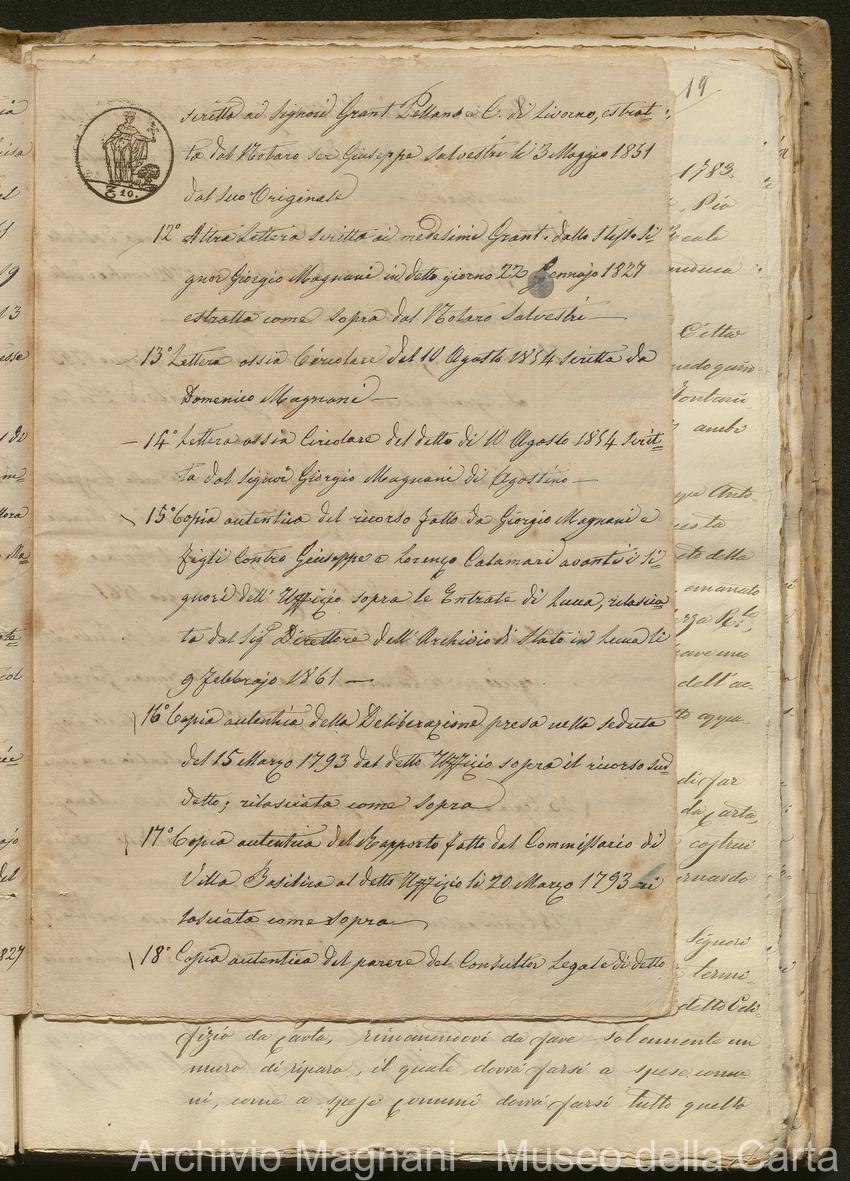 scritta ai Signori Grant Pellans e C. di Livorno, estrat-
ta dal Notaro ser Giuseppe Salvestri li 3 Maggio 1851
dal suo Originale
12° Altra Lettera scritta ai medesimi Grant. dallo stesso Si=
gnor Giorgio Magnani in detto giorno 22 Gennajo 1827
estratta come sopra dal Notaro Salvestri —
13° Lettera ossia Circolare del 10 Agosto 1854 scritta da
Domenico Magnani —
14° Lettera ossia Circolare del detto dì 10 Agosto 1854 scrit=
ta dal Signor Giorgio Magnani di Agostino —
15° Copia autentica del ricorso fatto da Giorgio Magnani e
Figli contro Giuseppe e Lorenzo Calamari avanti i Si=
gnori dell' Uffizio sopra le Entrate di Lucca, rilascia=
ta dal Sig.r Direttore dell' Archivio di Stato in Lucca li
9 Febbrajo 1861 —
16° Copia autentica della Deliberazione presa nella seduta
del 15 Marzo 1793 dal detto Uffizio sopra il ricorso sud=
detto; rilasciata come sopra
17° Copia autentica del Rapporto fatto dal Commissario di
Villa Basilica al detto Uffizio li 20 Marzo 1793 ri
lasciata come sopra
18° Copia autentica del parere del Consultor Legale di detto
fizio da Carta, rimanendovi da fare solamente un
muro di riparo, il quale dovrà farsi a spese comu-
ni, come a spese comuni dovrà farsi tutto quello
10.
19
1783.
Pio
Reale
Città
Fontana
ambi
Anto-
emanato
dell'ac-
di far
da Carta,
costrui
Signori
termi-
detto Edi-
1827
Archivio Magnani - Museo della Carta